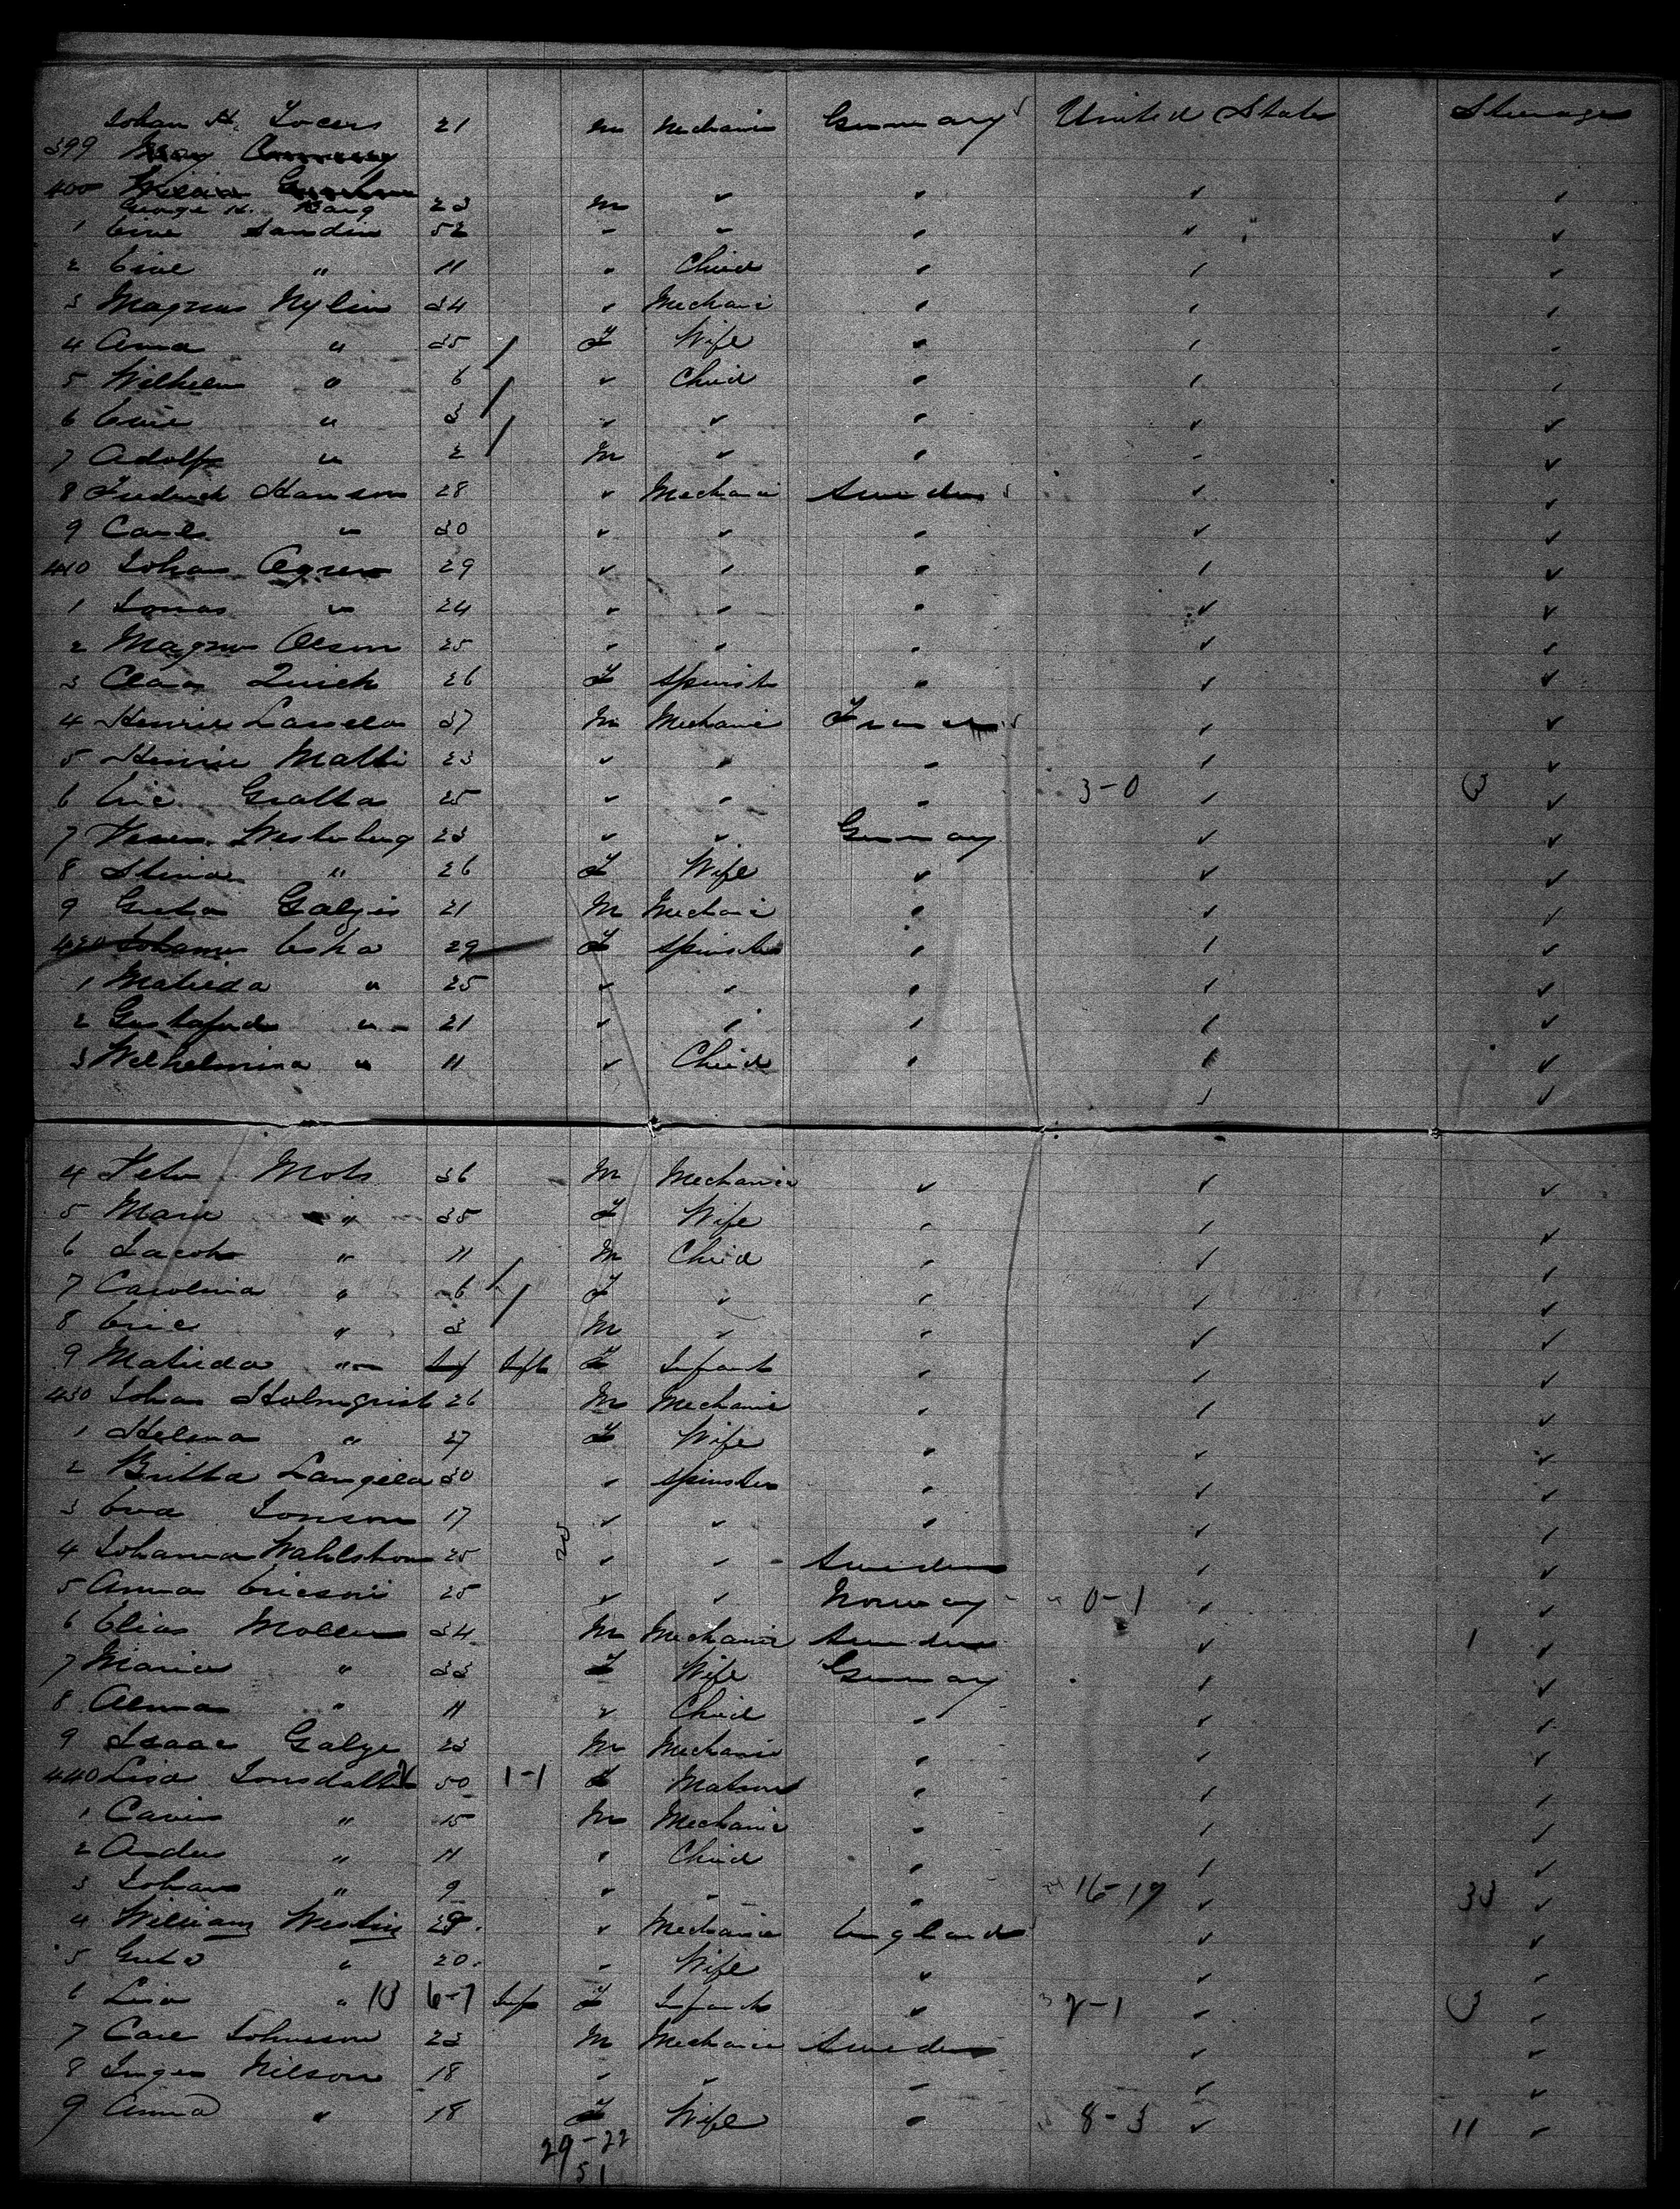 Johan H. 21 m Mechanic Germany United States Steerage
399
400
George H. 23 m
1 Eric Sandin 52
2 Eric " 11 Child
3 Magnus Nylin 34 Mechanic
4 Anna " 35 F Wife
5 Wilhelm " 6 Child
6 Eric " 3
7 Adolf " 2 M
8 Fredrick Hanson 28 Mechanic Sweden
9 Carl " 30
410 Johan Agren 29
1 Jonas " 24
2 Magnus Olson 25
3 Clara 26 F Spinster
4 Henric 37 M Mechanic France
5 Henric Matti 23
6 Eric Gratta 25 3-0 3
7 Westerberg 23 Germany
8 Stina " 26 F Wife
9 Greta 21 M Mechanic
420 Johanna Eska 29 F Spinster
1 Matilda " 25
2 " 21
3 Wilhelmina " 11 Child
4 Peter Mots 36 M Mechanic
5 Maria " 35 F Wife
6 Jacob " 11 M Child
7 Carolina " 6 F
8 Eric " 3 M
9 Matilda " Inf F Infant
430 Johan Holmqvist 26 M Mechanic
1 Helena " 27 F Wife
2 Britta 30 Spinster
3 Eva Jonson 17
4 Johanna Wahlstrom 25 Sweden
5 Anna Ericson 25 Norway 0-1
6 Elias Moller 34 M Mechanic Sweden 1
7 Maria " 33 F Wife Germany
8 Alma " 11 Child
9 Isaac 23 M Mechanic
440 Lisa Jonsdatter 50 1-1 F Matron
1 " 15 M Mechanic
2 Anders " 11 Child
3 Johan " 9 16-17 33
4 William Westin 29 Mechanic England
5 Greta " 20 Wife
6 Lisa " 10 6-7 Inf F Infant 2-1 3
7 Carl Johnsson 23 M Mechanic Sweden
8 Inger Nilson 18
9 Anna " 18 F Wife 8-3 11
29-22
51